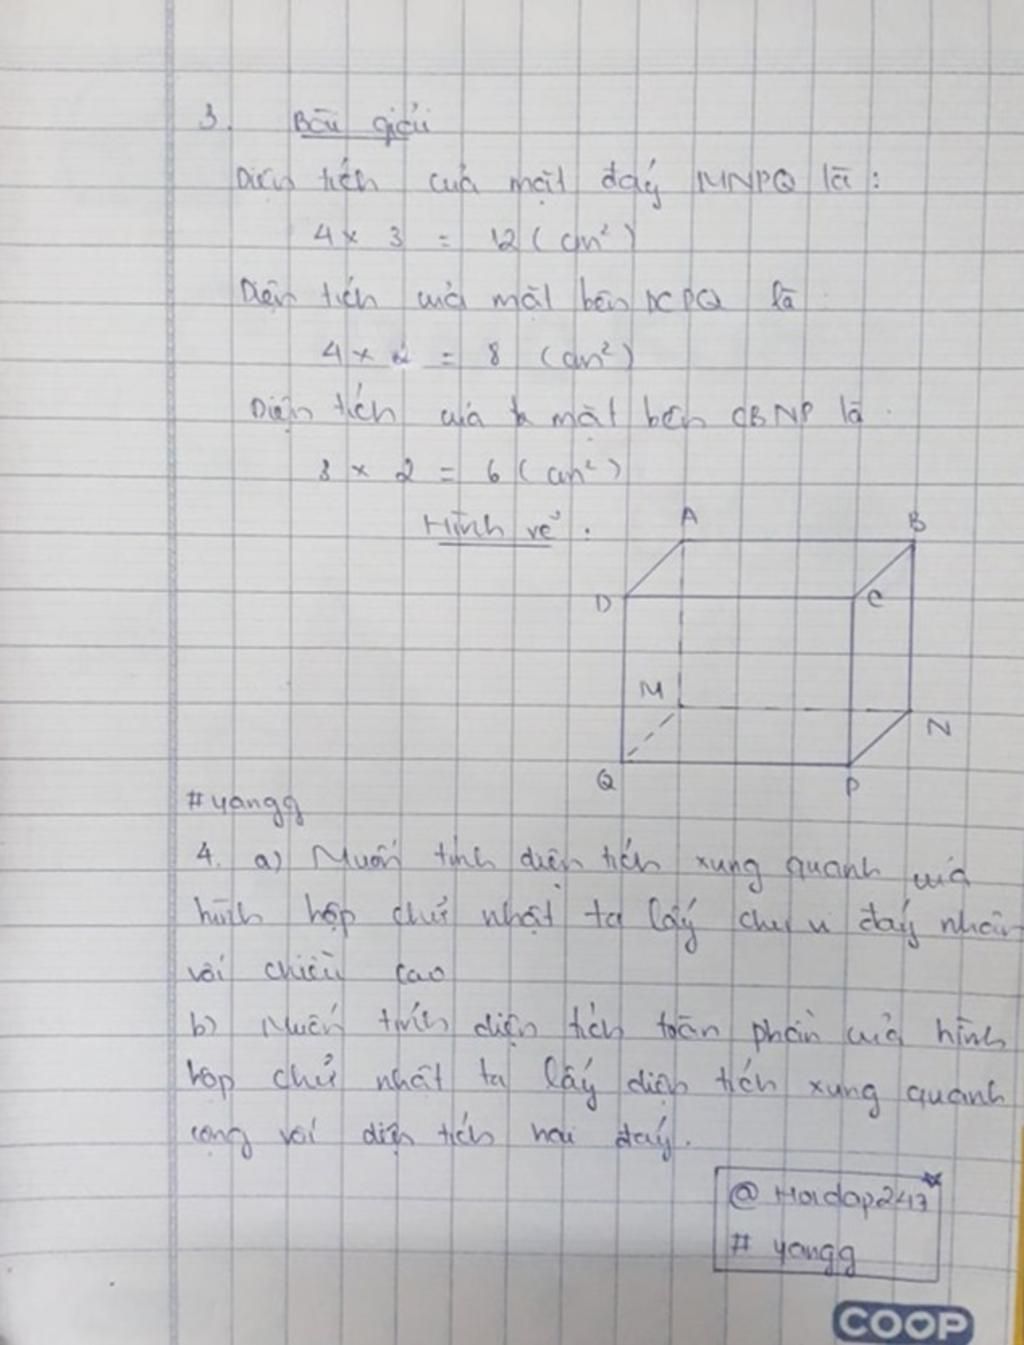 3. Bài giải
Diện tích của mặt đáy MNPQ là:
4 x 3 = 12 (cm²)
Diện tích của mặt bên DCPQ là
4 x 2 = 8 (cm²)
Diện tích của mặt bên CBNP là
3 x 2 = 6 (cm²)
Hình vẽ:
A B
D C
M N
Q P
#yangg
4. a) Muốn tính diện tích xung quanh của
hình hộp chữ nhật ta lấy chu vi đáy nhân
với chiều cao
b) Muốn tính diện tích toàn phần của hình
hộp chữ nhật ta lấy diện tích xung quanh
cộng với diện tích hai đáy.
@Hoidap247
# yangg
COOP